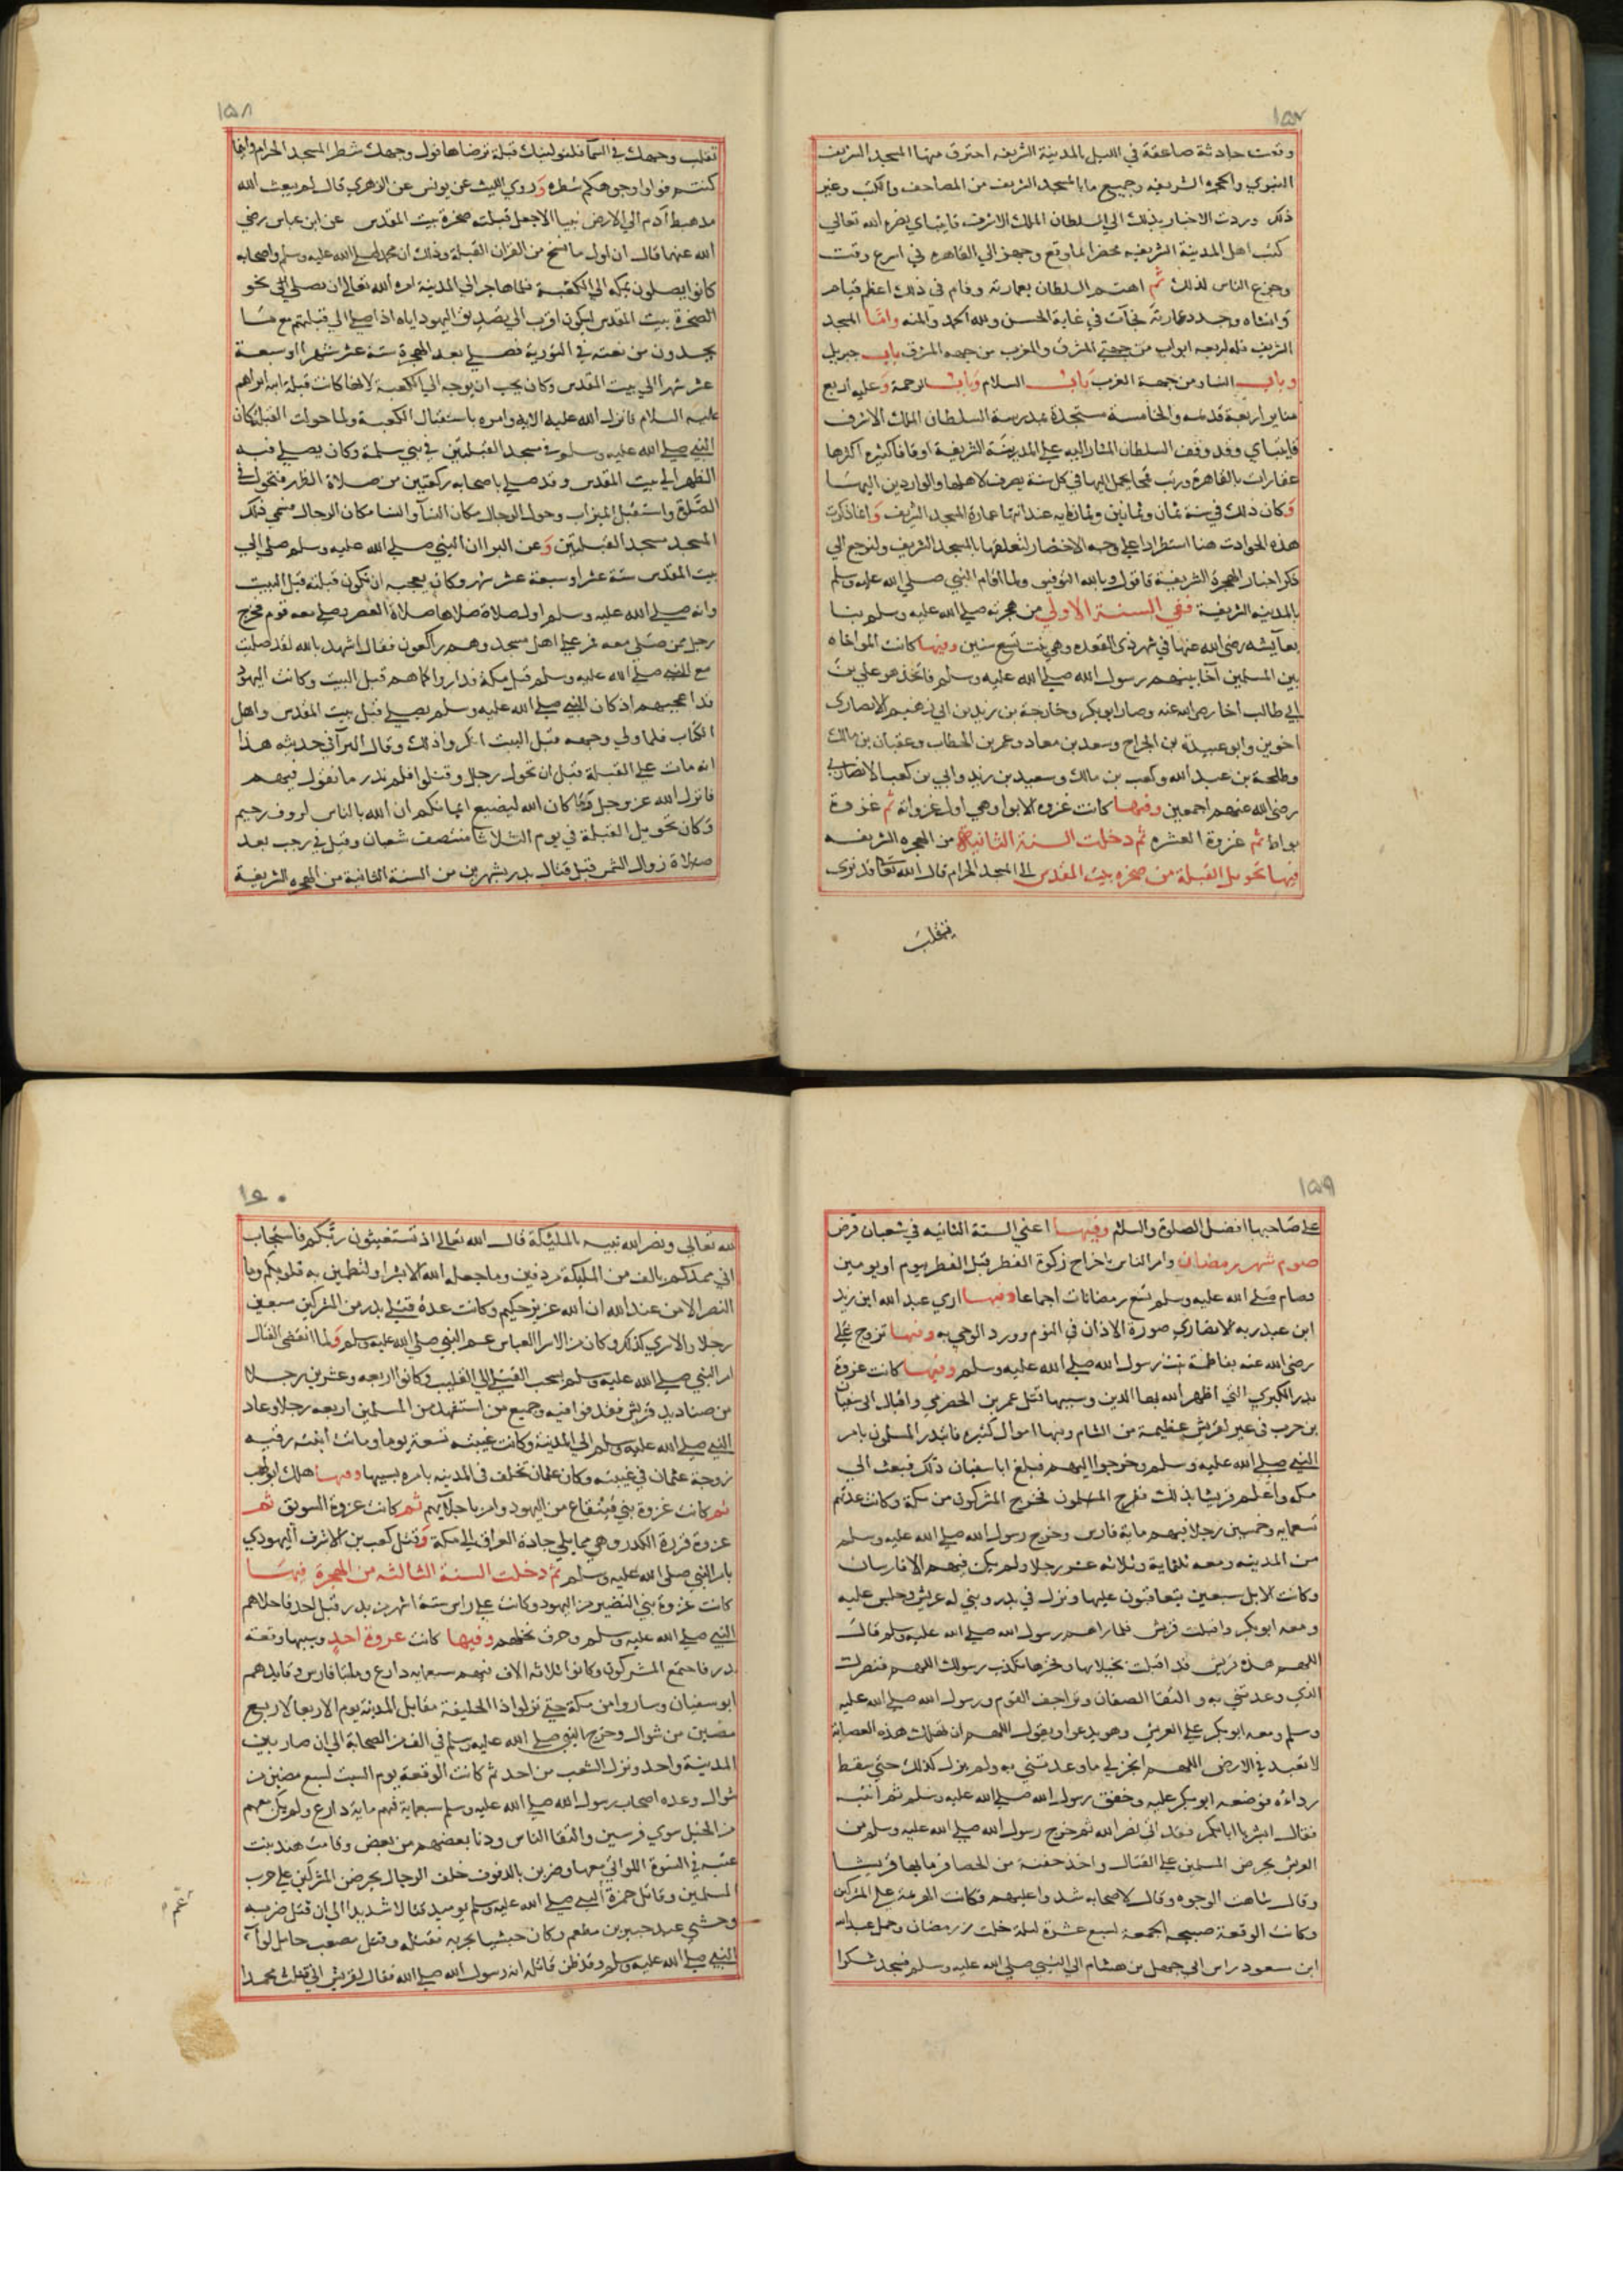 ١٥٧
وقعت حادثة صاعقة في الليل بالمدينة الشريفه احترق منها المسجد الشريف
النبوي والحجره الشريفه وجميع ما بالمسجد الشريف من المصاحف والكتب وغير
ذلك وردت الاخبار بذلك الي السلطان الملك الاشرف قايتباي نصره الله تعالي
كتب اهل المدينة الشريفه محضرا لما وقع وجهز الي القاهره في اسرع وقت
وجزع الناس لذلك ثم اهتم السلطان بعمارته وقام في ذلك اعظم قيام
وانشاه وجدد عمارته فجآت في غاية الحسن ولله الحمد والمنه واما المسجد
الشريف فله اربعه ابواب من جهتي المشرق والمغرب من جهه المشرق باب جبريل
وباب النساء ومن جهة الغرب باب السلام وباب الرحمة وعليه اربع
مناير اربعة قديمه والخامسة مستجدة بمدرسة السلطان الملك الاشرف
قايتباي وقد وقف السلطان المشار اليه علي المدينة الشريفة اوقافا كثيره اكثرها
عقارات بالقاهرة ورتب قمحا يحمل اليها في كل سنة يصرف لاهلها والواردين اليها
وكان ذلك في سنة ثمان وثمانين وثمانمايه عند انتها عمارة المسجد الشريف وانما ذكرت
هذه الحوادث هنا استطرادا علي وجه الاختصار لتعلقها بالمسجد الشريف ولنرجع الي
ذكر اخبار الهجرة الشريفة فاقول وبالله التوفيق ولما اقام النبي صلي الله عليه وسلم
بالمدينه الشريفة ففي السنة الاولي من هجرته صلي الله عليه وسلم بنا
بعآيشه رضي الله عنها في شهر ذي القعده وهي بنت تسع سنين وفيها كانت المواخاه
بين المسلمين آخا بينهم رسول الله صلي الله عليه وسلم فاتخذ هو علي بن
ابي طالب اخا رضي الله عنه وصار ابو بكر وخارجة بن زيد بن ابي زهير الانصاري
اخوين وابو عبيدة بن الجراح وسعد بن معاد وعمر بن الخطاب وعتبان بن مالك
وطلحة بن عبد الله وكعب بن مالك وسعيد بن زيد وابي بن كعب الانصاري
رضي الله عنهم اجمعين وفيها كانت غزوه الابوا وهي اول غزواته ثم غزوة
بواط ثم غزوة العشره ثم دخلت السنة الثانية من الهجره الشريفه
فيها تحويل القبلة من صخره بيت المقدس الي المسجد الحرام قال الله تعالي قد نري
تقلب
١٥٨
تقلب وجهك في السما فلنولينك قبلة ترضاها فول وجهك شطر المسجد الحرام وايما
كنتم فولوا وجوهكم شطره وروي الليث عن يونس عن الزهري قال لم يبعث الله
مذ هبط آدم الي الارض نبيا الا جعل قبلته صخره بيت المقدس عن ابن عباس رضي
الله عنهما قال ان اول ما نسخ من القران القبلة وذلك ان محمدا صلي الله عليه وسلم واصحابه
كانوا يصلون بمكه الي الكعبة فلما هاجر الي المدينة امره الله تعالي ان يصلي الي نحو
الصخرة بيت المقدس ليكون اقرب الي تصديق اليهود اياه اذا صلي الي قبلتهم مع ما
يجدون من نعته في التورية فصلي بعد الهجرة سته عشر شهرا او سبعة
عشر شهرا الي بيت المقدس وكان يحب ان يوجه الي الكعبة لانها كانت قبلة ابيه ابراهيم
عليه السلام فانزل الله عليه الايه وامره باستقبال الكعبة ولما حولت القبله كان
النبي صلي الله عليه وسلم في مسجد القبلتين في بني سلمة وكان يصلي فيه
الظهر الي بيت المقدس وقد صلي باصحابه ركعتين من صلاة الظهر فتحول في
الصلاة واستقبل الميزاب وحول الرجال مكان النسآ والنسا مكان الرجال فسمي ذلك
المسجد مسجد القبلتين وعن البرا ان النبي صلي الله عليه وسلم صلي الي
بيت المقدس ستة عشر او سبعة عشر شهر وكان يعجبه ان تكون قبلته قبل البيت
وانه صلي الله عليه وسلم اول صلاة صلاها صلاة العصر وصلي معه قوم فخرج
رجل ممن صلي معه فمر علي اهل مسجد وهم راكعون فقال اشهد بالله لقد صليت
مع النبي صلي الله عليه وسلم قبل مكة فداروا كما هم قبل البيت وكانت اليهود
قد اعجبهم اذ كان النبي صلي الله عليه وسلم يصلي قبل بيت المقدس واهل
الكتاب فلما ولي وجهه قبل البيت انكروا ذلك وقال البرآ في حديثه هذا
انه مات علي القبلة قبل ان تحول رجال وقتلوا فلم ندر ما نقول فيهم
فانزل الله عز وجل وما كان الله ليضيع ايمانكم ان الله بالناس لروف رحيم
وكان تحويل القبلة في يوم الثلاثا منتصف شعبان وقيل في رجب بعد
صلاة زوال الشمس قبل قتال بدر بشهرين من السنة الثانية من الهجره الشريفة
١٥٩
علي صاحبها افضل الصلوة والسلام وفيها اعني السنة الثانيه في شعبان فرض
صوم شهر رمضان وامر الناس باخراج زكوة الفطر قبل الفطر بيوم او يومين
وصام صلي الله عليه وسلم تسع رمضانات اجماعا وفيها اري عبد الله ابن زيد
ابن عبد ربه الانصاري صورة الاذان في النوم وورد الوحي به وفيها تزوج علي
رضي الله عنه بفاطمة بنت رسول الله صلي الله عليه وسلم وفيها كانت غزوة
بدر الكبري التي اظهر الله بها الدين وسببها قتل عمر بن الحضرمي واقبال ابي سفيان
بن حرب في عير لقريش عظيمة من الشام وفيها اموال كثيره فابتدر المسلمون بامر
النبي صلي الله عليه وسلم وخرجوا اليهم فبلغ ابا سفيان ذلك فبعث الي
مكه واعلم قريشا بذلك فخرج المشركون من مكة وكانت عدتهم
تسعمايه وخمسين رجلا فيهم ماية فارس وخرج رسول الله صلي الله عليه وسلم
من المدينه ومعه ثلثماية وثلاثه عشر رجلا ولم يكن فيهم الا فارسان
وكانت الابل سبعين يتعاقبون عليها ونزل في بدر وبني له عريش وجلس عليه
ومعه ابو بكر واقبلت قريش فلما راهم رسول الله صلي الله عليه وسلم قال
اللهم هذه قريش قد اقبلت بخيلايها وفخرها تكذب رسولك اللهم فنصرك
الذي وعدتني به والتقا الصفان وتزاحف القوم ورسول الله صلي الله عليه
وسلم ومعه ابو بكر علي العريش وهو يدعوا ويقول اللهم ان تهلك هذه العصابة
لا تعبد في الارض اللهم انجز لي ما وعدتني به ولم يزل كذلك حتي سقط
رداؤه فوضعه ابو بكر عليه وخفق رسول الله صلي الله عليه وسلم ثم انتبه
فقال ابشر يا ابا بكر فقد اتي نصر الله ثم خرج رسول الله صلي الله عليه وسلم من
العريش يحرض المسلمين علي القتال واخذ حفنة من الحصا فرما بها قريشا
وقال شاهت الوجوه وقال لاصحابه شدوا عليهم فكانت الهزيمة علي المشركين
وكانت الوقعة صبيحه الجمعة لسبع عشرة ليلة خلت من رمضان وحمل عبد الله
ابن مسعود راس ابي جهل بن هشام الي النبي صلي الله عليه وسلم فسجد شكرا
١٦٠
لله تعالي ونصر الله نبيه بالمليكة قال الله تعالي اذ تستغيثون ربكم فاستجاب
اني ممدكم بالف من المليكة مردفين وما جعله الله الا بشرا ولتطمئن به قلوبكم وما
النصر الا من عند الله ان الله عزيز حكيم وكانت عدة قتلي بدر من المشركين سبعين
رجلا والاسري كذلك وكان من الاسرا العباس عم النبي صلي الله عليه وسلم ولما انقضي القتال
امر النبي صلي الله عليه وسلم بسحب القتلي الي القليب وكانوا اربعه وعشرين رجلا
من صناديد قريش فقذفوا فيه وجميع من استشهد من المسلمين اربعه رجلا وعاد
النبي صلي الله عليه وسلم الي المدينة وكانت غيبته تسعة يوما وماتت ابنته رقيه
زوجة عثمان في غيبته وكان عثمان تخلف في المدينه بامره بسببها وفيها هلك ابو لهب
ثم كانت غزوة بني قينقاع من اليهود وامر باجلآيهم ثم كانت غزوة السويق ثم
غزوة قرقرة الكدر وهي مما يلي جادة العراق الي مكة وقتل كعب بن الاشرف اليهودي
بامر النبي صلي الله عليه وسلم ثم دخلت السنة الثالثه من الهجرة فيها
كانت غزوة بني النضير من اليهود وكانت علي راس ستة اشهر من بدر قبل احد فاجلاهم
النبي صلي الله عليه وسلم وحرق نخلهم وفيها كانت غزوة احد وسببها وقعة
بدر فاجتمع المشركون وكانوا ثلاثه الاف فيهم سبعمايه دارع ومايتا فارس وقايدهم
ابو سفيان وساروا من مكة حتي نزلوا ذا الحليفة مقابل المدينة يوم الاربعا لاربع
مضين من شوال وخرج النبي صلي الله عليه وسلم في الف من الصحابة الي ان صار بين
المدينة واحد ونزل الشعب من احد ثم كانت الوقعة يوم السبت لسبع مضين من
شوال وعده اصحاب رسول الله صلي الله عليه وسلم سبعماية فيهم ماية دارع ولم يكن معهم
من الخيل سوي فرسين والتقا الناس ودنا بعضهم من بعض وقامت هند بنت
عتبه في النسوة اللواتي معها وضربن بالدفوف خلف الرجال يحرضن المشركين علي حرب
المسلمين وقاتل حمزة صلي الله عليه وسلم يوميذ قتالا شديدا الي ان قتل ضربه
وحشي عبد جبير بن مطعم وكان حبشيا بحربه فقتله وقتل مصعب حامل لوآء
النبي صلي الله عليه وسلم وقد ظن قاتله انه رسول الله صلي الله فقال لقريش اني قتلت محمدا
عم